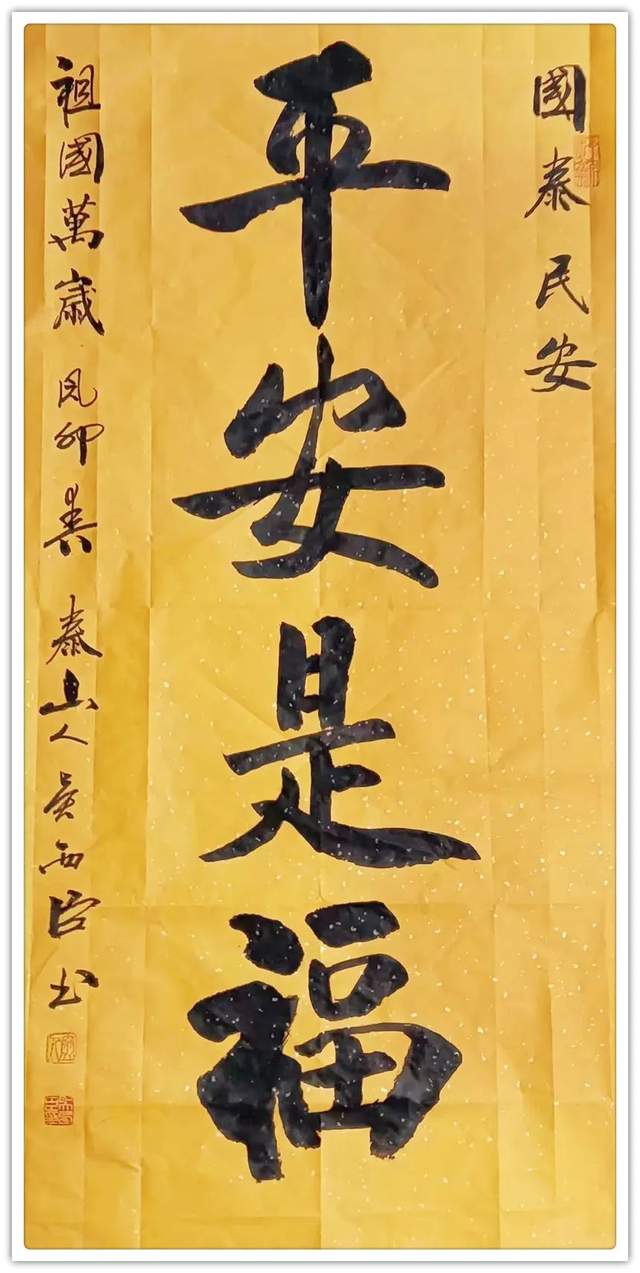 國泰民安
平安是福
祖國萬歲 卯春 泰山人吴西书